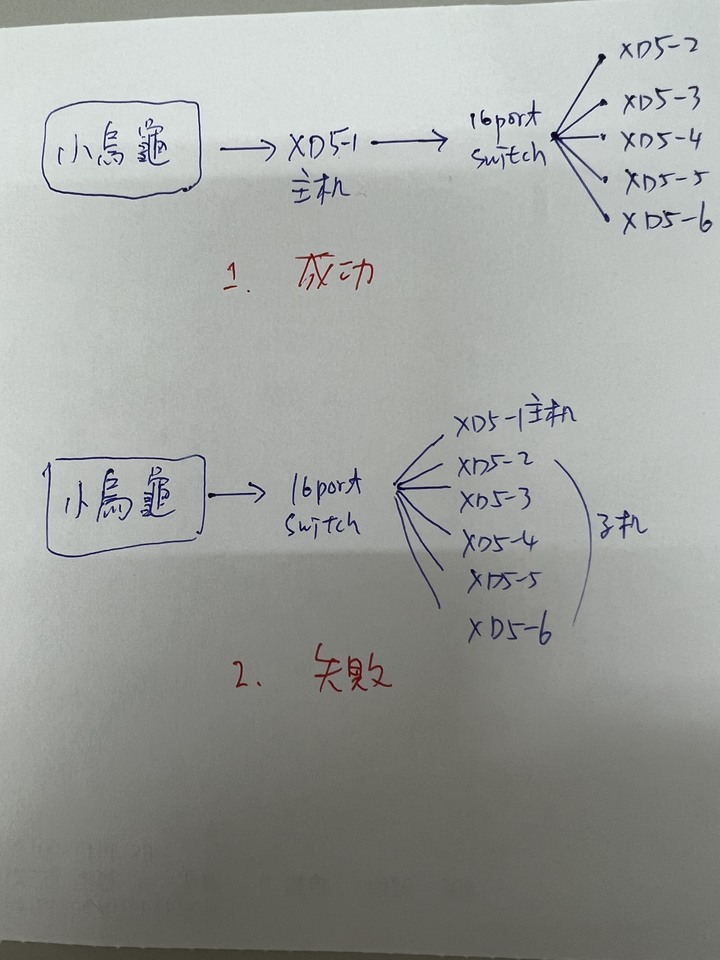 小烏龜
XD5-1
主机
16port
switch
XD5-2
XD5-3
XD5-4
XD5-5
XD5-6
1. 成功
小烏龜
16port
switch
XD5-1主机
XD5-2
XD5-3
XD5-4
XD5-5
XD5-6
子机
2. 失敗